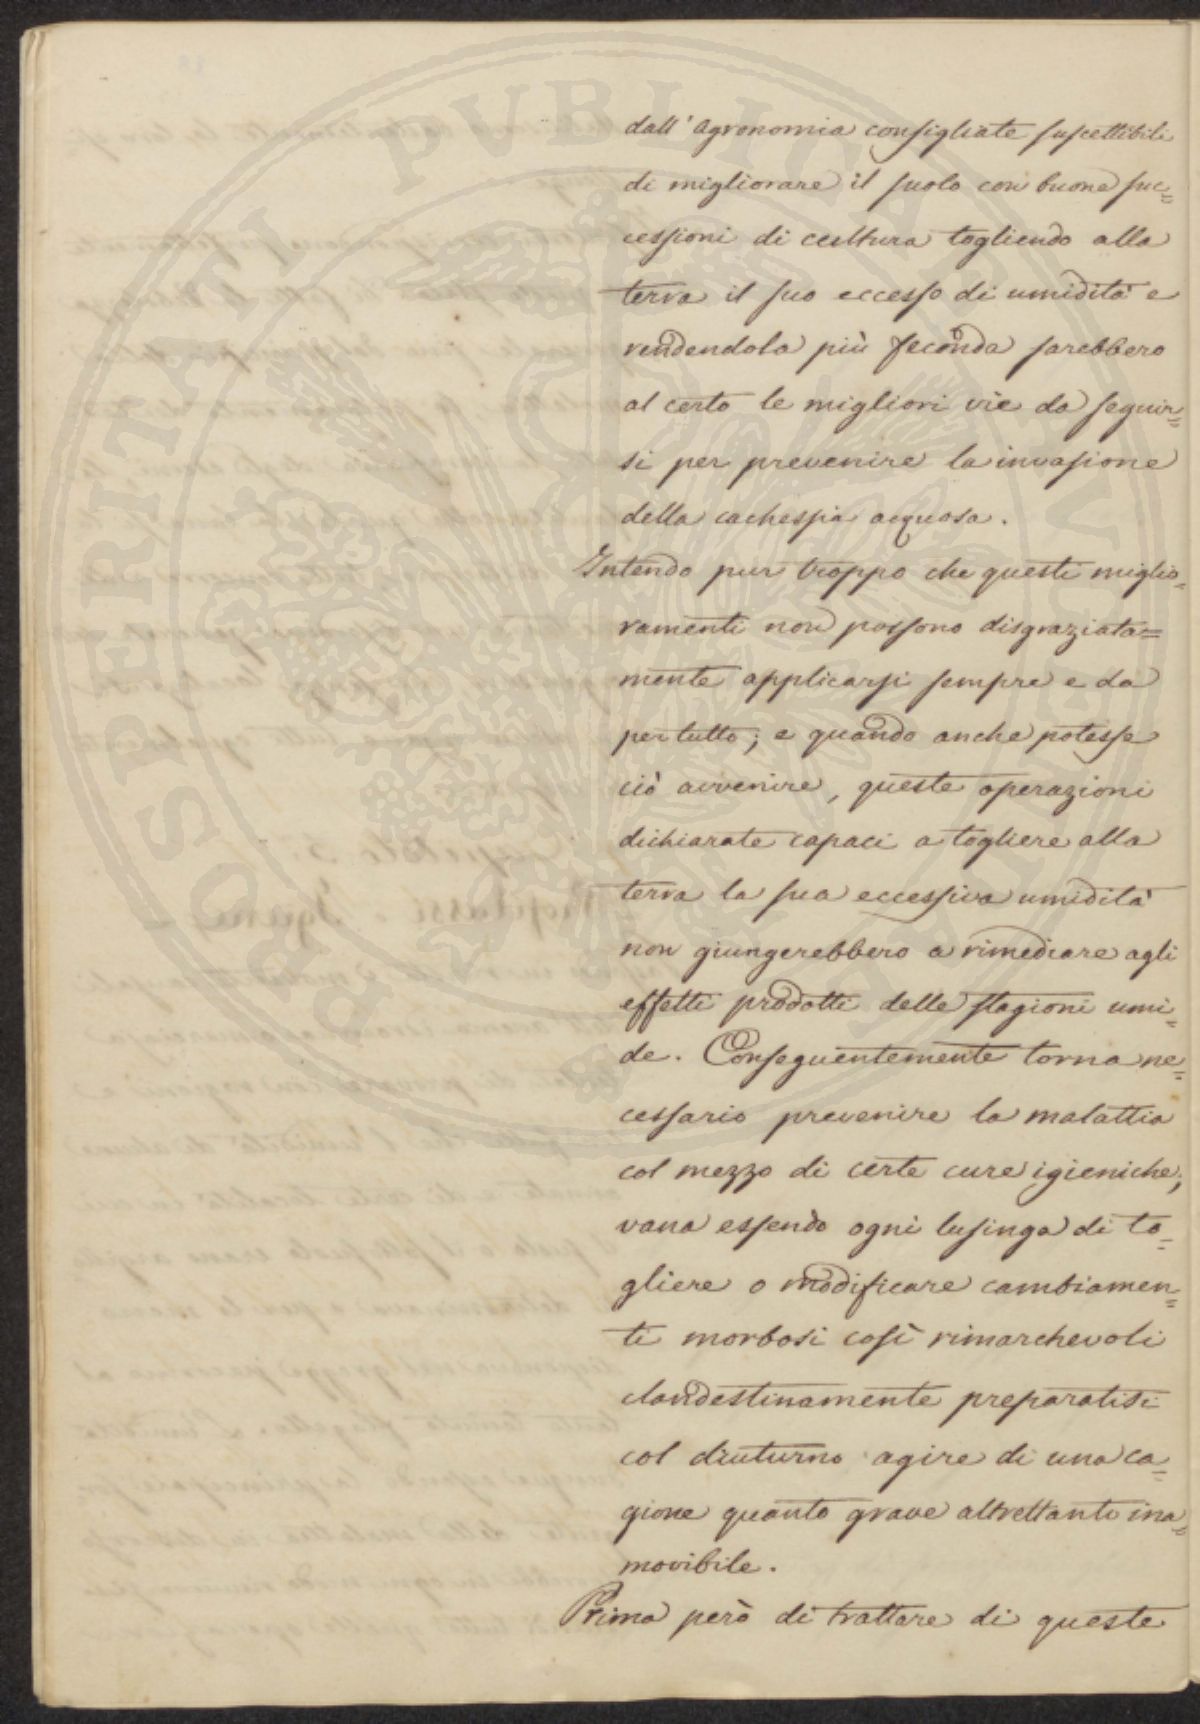 dall' Agronomia consigliate suscettibili
di migliorare il suolo con buone suc=
cessioni di coltura togliendo alla
terra il suo eccesso di umidità e
rendendola più feconda sarebbero
al certo le migliori vie da seguir=
si per prevenire la invasione
della cachessia acquosa.
Intendo pur troppo che questi miglio=
ramenti non possono disgraziata=
mente applicarsi sempre e da
per tutto; e quando anche potesse
ciò avvenire, queste operazioni
dichiarate capaci a togliere alla
terra la sua eccessiva umidità
non giungerebbero a rimediare agli
effetti prodotti delle stagioni umi=
de. Conseguentemente torna ne=
cessario prevenire la malattia
col mezzo di certe cure igieniche,
vana essendo ogni lusinga di to=
gliere o modificare cambiamen=
ti morbosi così rimarchevoli
clandestinamente preparatisi
col diuturno agire di una ca=
gione quanto grave altrettanto ina=
movibile.
Prima però di trattare di queste
PROSPERITATI PUBLICAE AUGENDAE